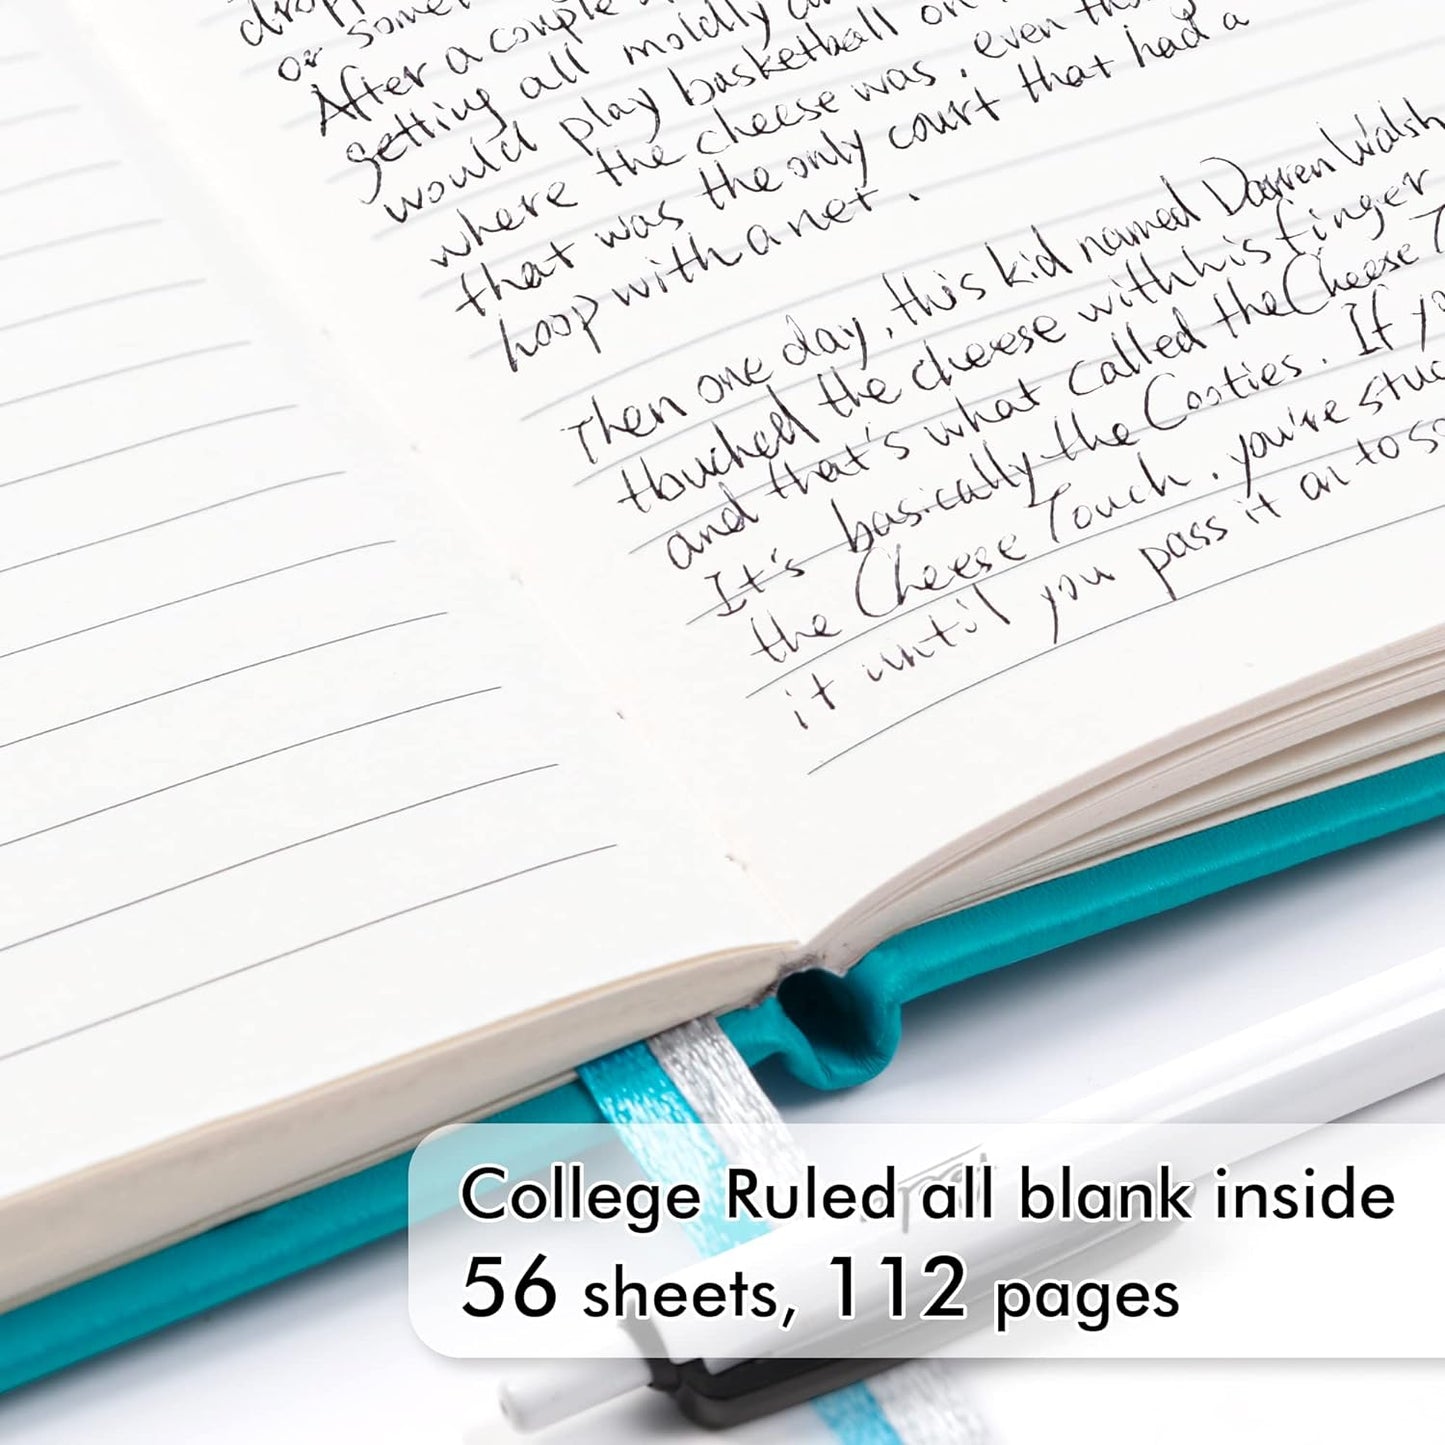 or some
After a couple
getting all moldly
would play basketball on
where the cheese was, even tho
that was the only court that had a
hoop with a net.
Then one day, this kid named Darren Walsh
tbuched the cheese with his finger
and that's what called the Cheese T
It's basically the Cooties. If yo
the Cheese Touch. you're stuc
it until you pass it on to so
College Ruled all blank inside
56 sheets, 112 pages